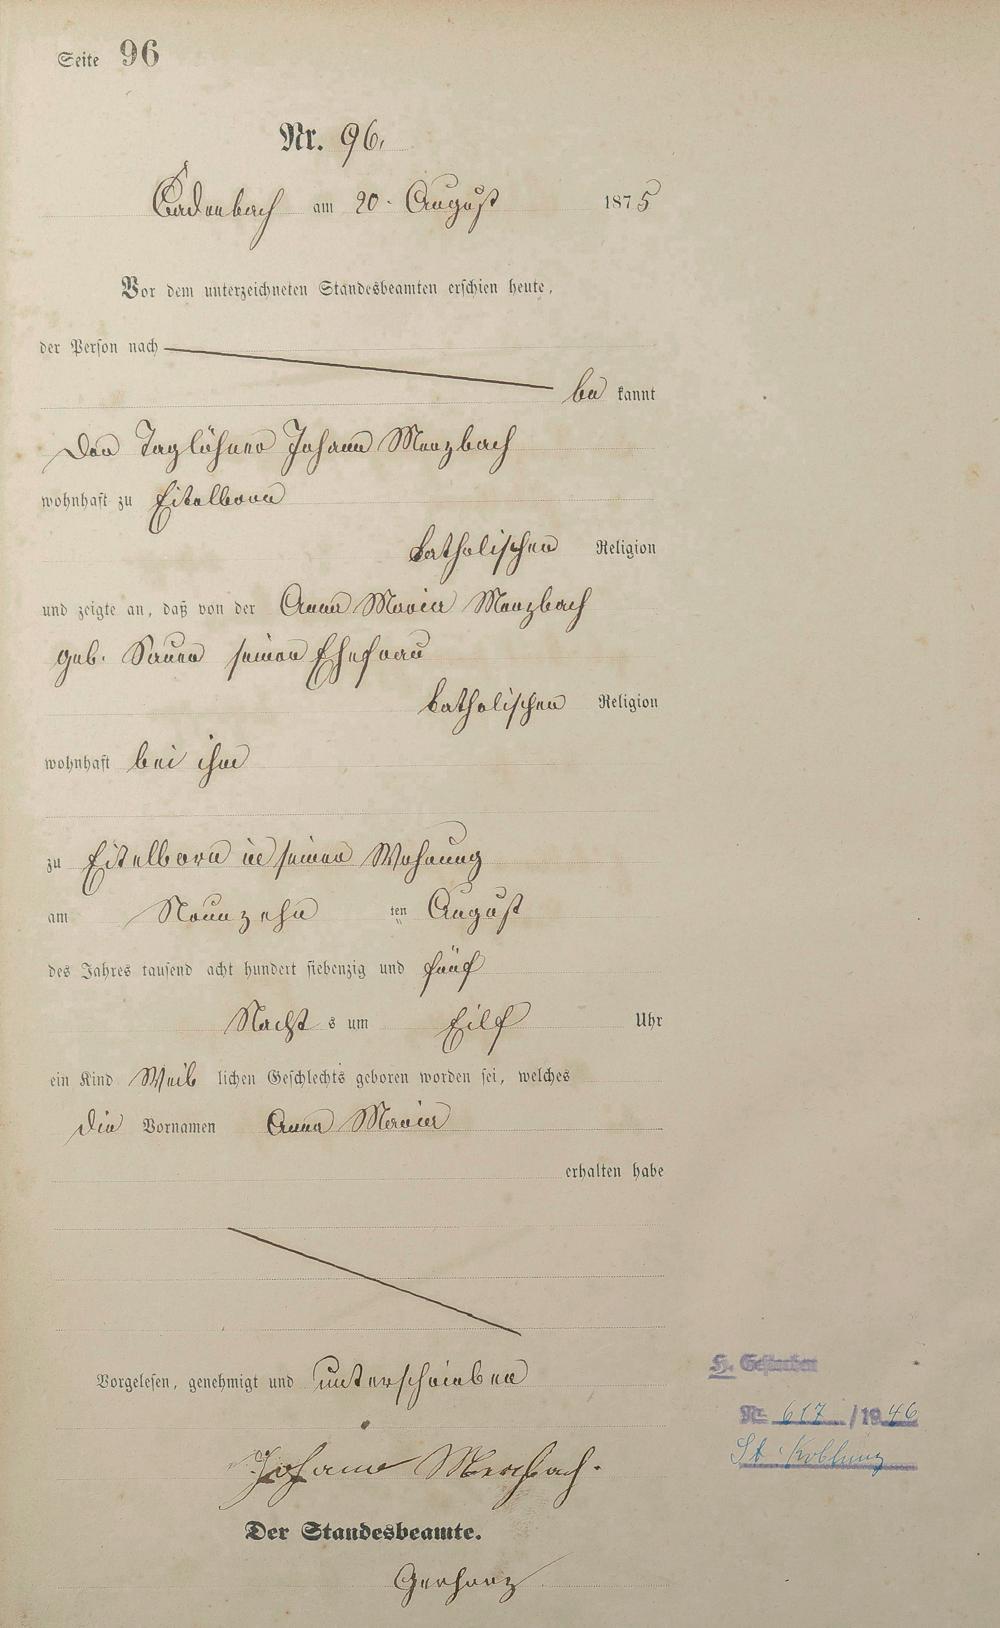 Seite 96
Nr. 96.
Cadenbach am 20. August 1875
Vor dem unterzeichneten Standesbeamten erschien heute,
der Person nach
be kannt
der Taglöhner Johann Merzbach
wohnhaft zu Eitelborn
katholischer Religion
und zeigte an, daß von der Anna Maria Merzbach
geb. Sauer seiner Ehefrau
katholischer Religion
wohnhaft bei ihm
zu Eitelborn in seiner Wohnung
am Neunzehn ten August
des Jahres tausend acht hundert siebenzig und fünf
Nacht s um Eilf Uhr
ein Kind Weib lichen Geschlechts geboren worden sei, welches
die Vornamen Anna Maria
erhalten habe
Vorgelesen, genehmigt und unterschrieben
Johann Merzbach.
Der Standesbeamte.
Gerharz
H. Gestorben
Nr. 617 / 1946
St. Koblenz